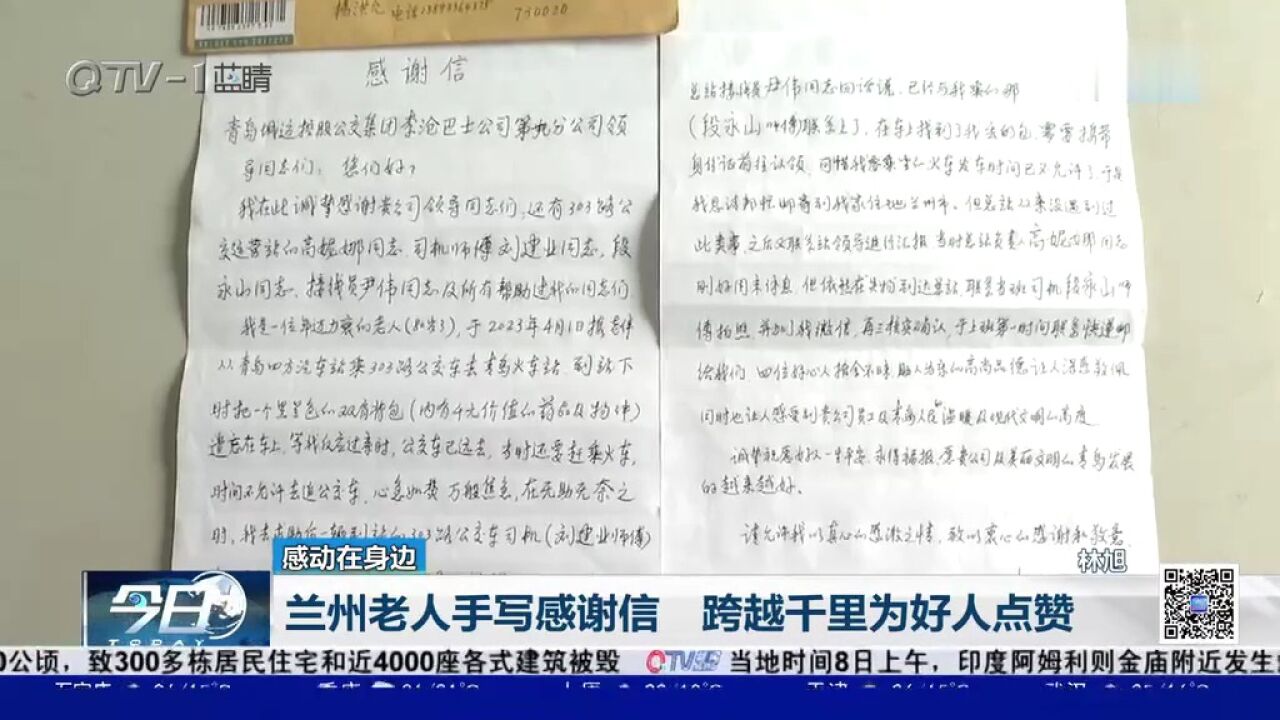 杨洪允 电话
730020
QTV-1蓝睛
感谢信
青岛城运控股公交集团李沧巴士公司第九分公司领
导同志们：您们好？
我在此诚挚感谢贵公司领导同志们，还有303路公
交运营站的高妮娜同志、司机师傅刘建业同志，段
永山同志、接线员尹伟同志及所有帮助过我的同志们
我是一位年近力衰的老人(80岁)，于2023年4月1日携老伴
从青岛四方汽车站乘303路公交车去青岛火车站，到站下
时把一个黑色的双肩背包(内有4元价值的药品及物件)
遗忘在车上，等我反应过来时，公交车已远去，当时还要赶乘火车，
时间不允许去追公交车，心急如焚 万般焦急，在无助无奈之
时，我去求助后一辆到站的303路公交车司机(刘建业师傅)
总站接线员尹伟同志回话说，已经与我乘的那
(段永山师傅)联系上了，在车上找到了我丢的包，需要携带
身份证前往认领，可惜我要乘坐的火车发车时间已不允许了，于是
我恳请帮忙邮寄到我家住地兰州市。但总站从来没遇到过
此类事，之后又联系站领导进行汇报，当时总站负责人高妮娜同志
刚好周末休息，但依然在失物到达总站，联系当班司机段永山师
傅拍照，并加我微信，再三核实确认，于上班第一时间联系快递邮
给我们，四位好心人拾金不昧，助人为乐的高尚品德让人深感敬佩
同时也让人感受到贵公司员工及青岛人民的温暖及现代文明的高度
诚挚祝愿好人一生平安，永得福报，愿贵公司及美丽文明的青岛发展
的越来越好。
请允许我以真心的感激之情，致以衷心的感谢和敬意
感动在身边
林旭
今日
TODAY
兰州老人手写感谢信 跨越千里为好人点赞
0公顷，致300多栋居民住宅和近4000座各式建筑被毁 QTV 当地时间8日上午，印度阿姆利则金庙附近发生